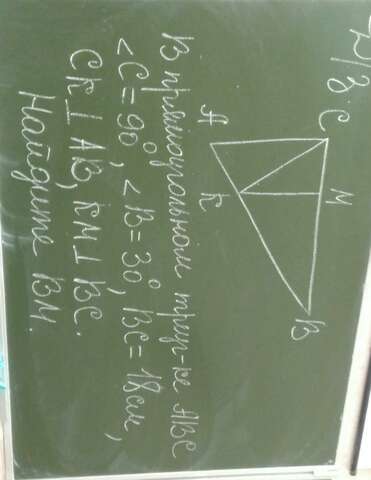 Д/з.
С
М
А
К
В
В прямоугольном треуг-ке АВС
<C = 90°, <B = 30°, BC = 18см,
СК ⊥ АВ, КМ ⊥ ВС.
Найдите ВМ.